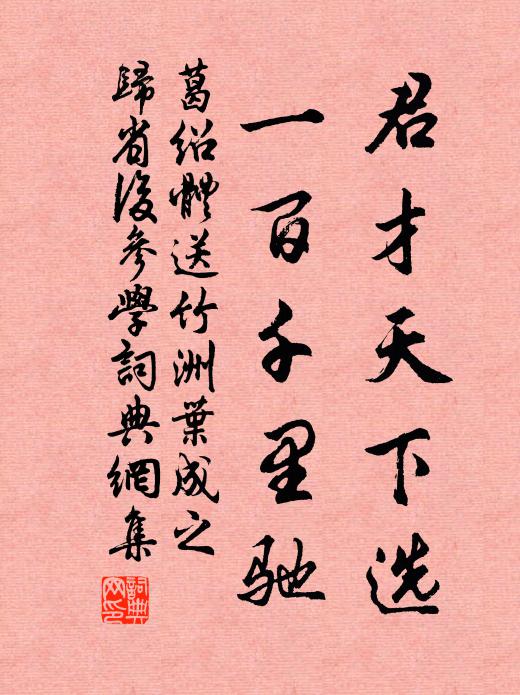 君才天下选
一百千里驰
葛绍體送竹洲葉成之
歸省後參學詞典網集
詞典网印